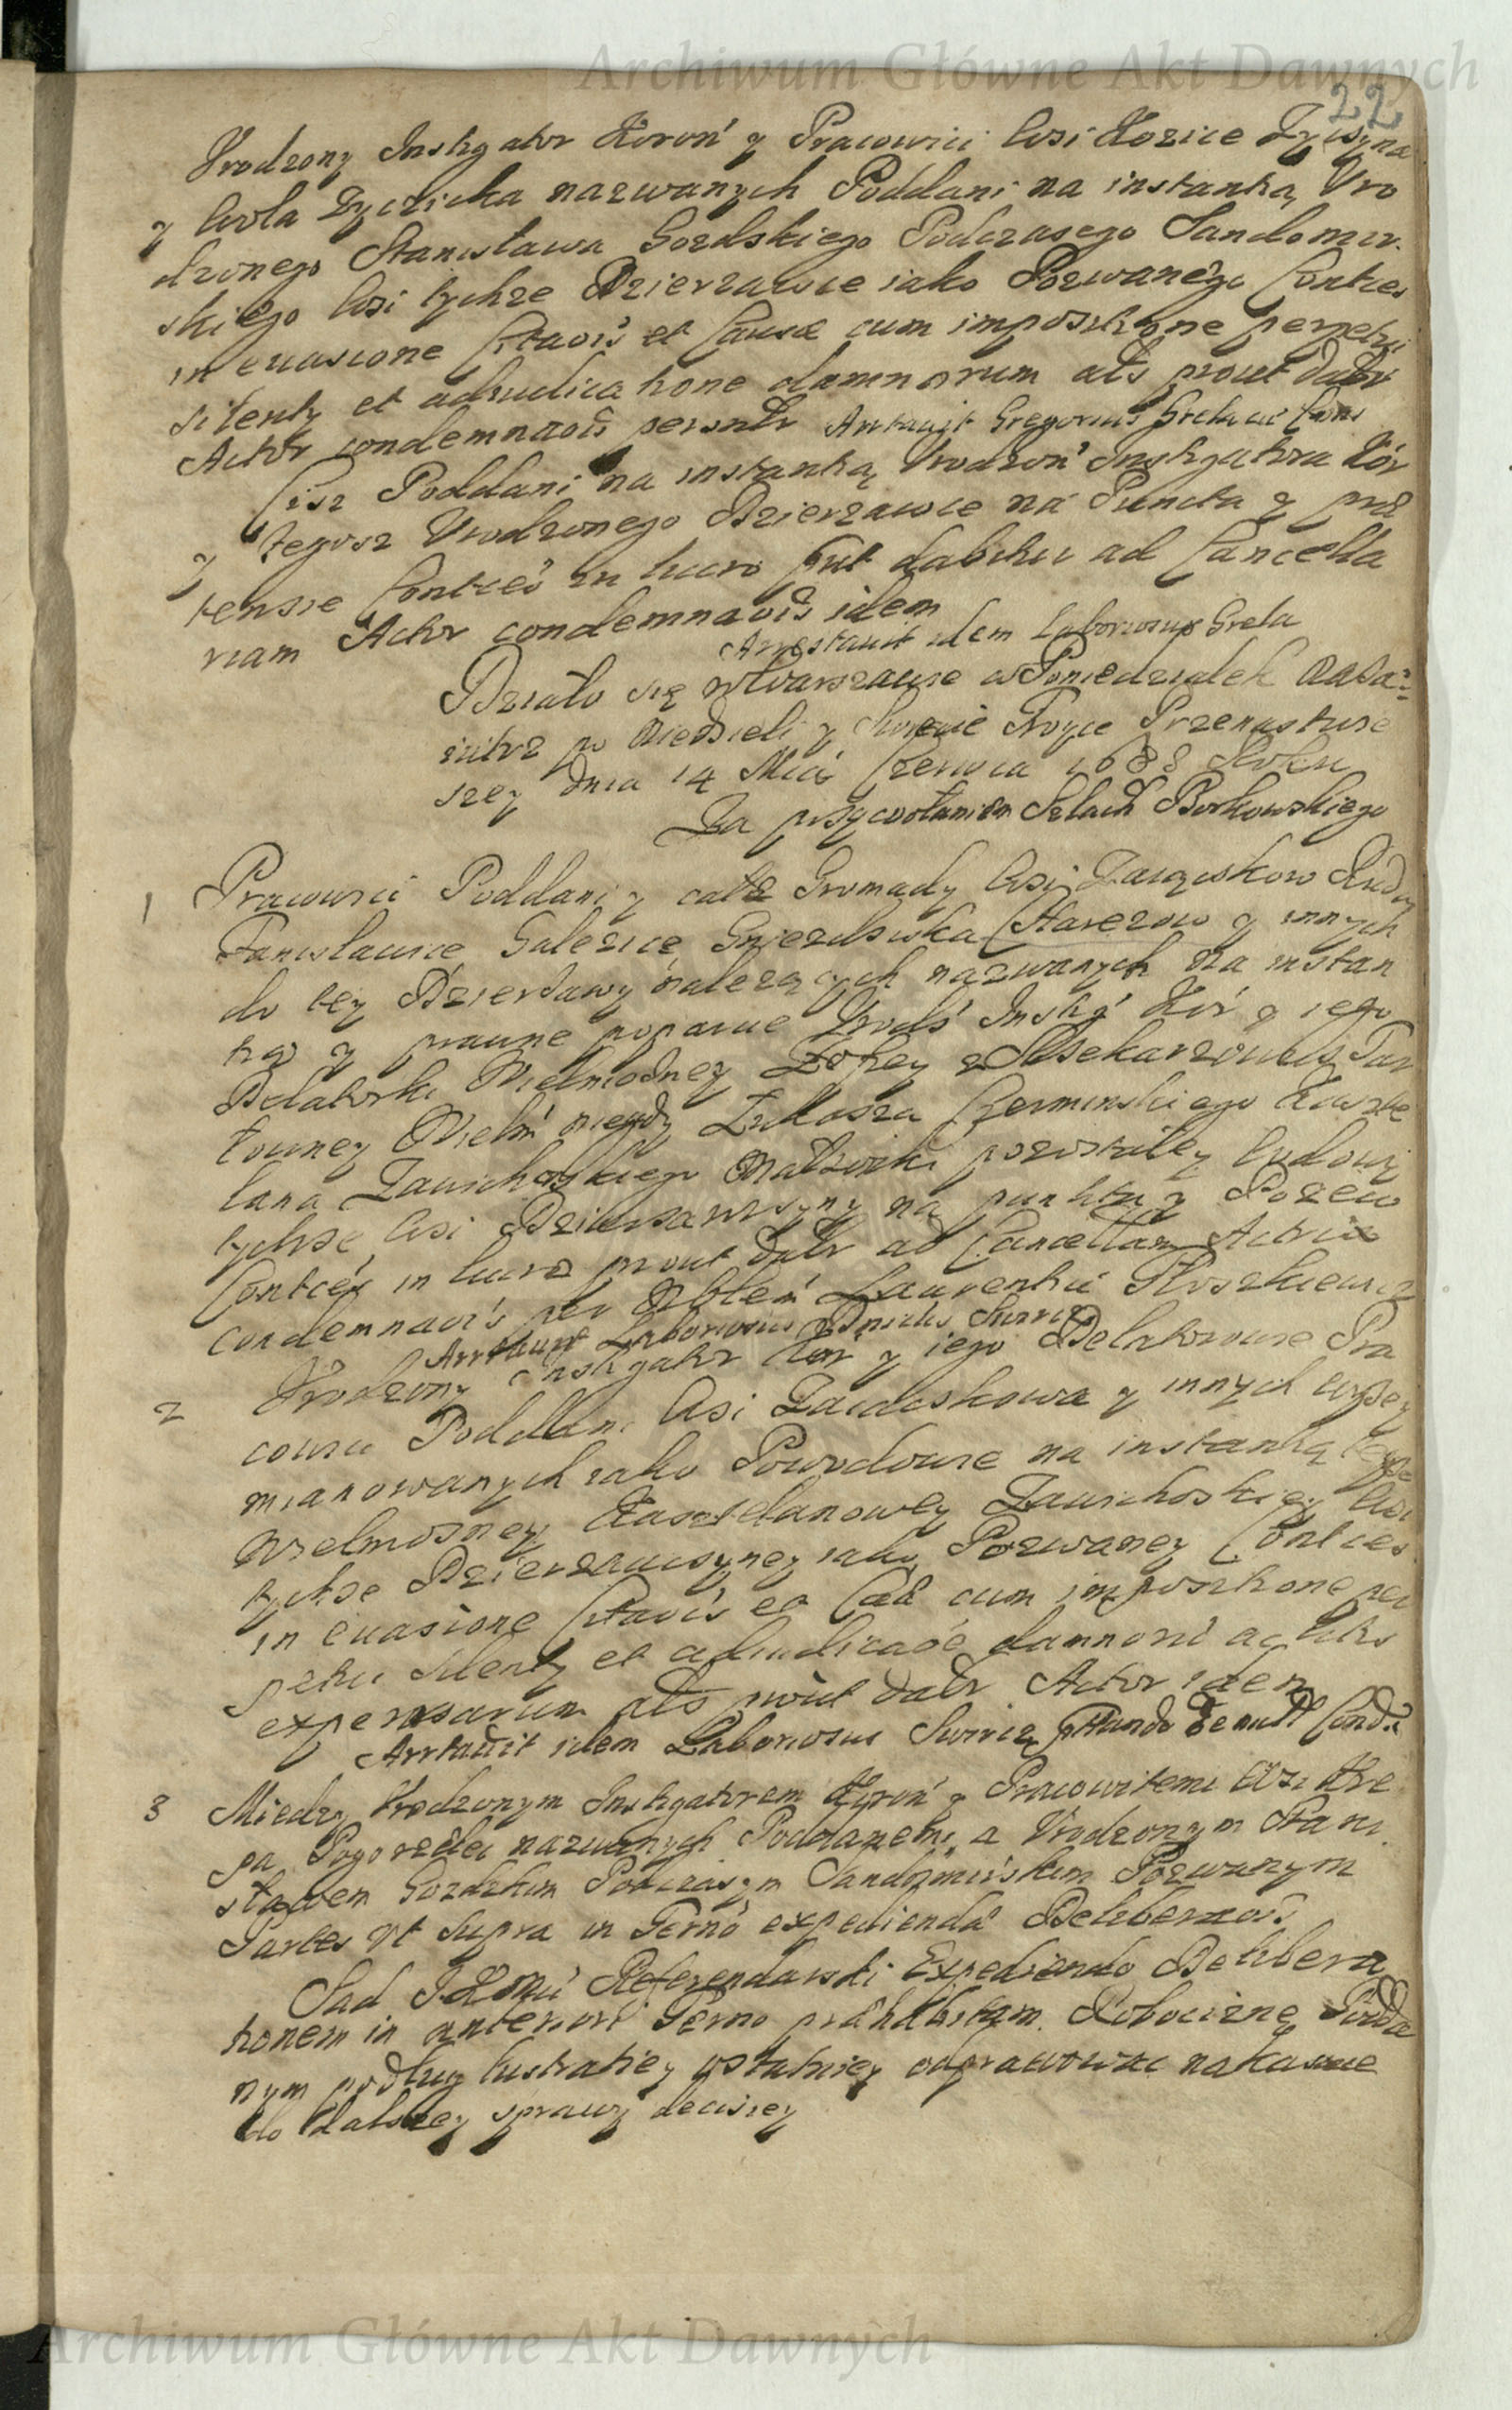 Archiwum Główne Akt Dawnych
22
Vrodzony Instigator Koroń y Pracowici Wsi Kozice Zyczyna
y Wola Zyczicka nazwanych Poddani na instantią Vro
dzonego Stanisława Gozdskiego Podczasego Sandomir
skiego Wsi tychze Dzierzawce iako Pozwanego Contces
in euasione et Causæ cum impositione perpetui
silenty et adiudicatione damnorum als prout datr
Actor condemnaois personlr Arrtauit Gregorius Grela
Cisz Poddani na instantią Vrodzoń Instigatora Kór
y tegosz Vrodzonego Dzierzawce na Puncta y præ
tensie Contces in lucro prut dabitur ad Cancella
riam Actor condemnaois idem
Arrestauit idem Laboriosus Grela
Działo się w Warszawie w Poniedziałek naza=
iutrz po Niedzieli y Troyce Przenaswie
szey dnia 14 Mca Czerwca 1688 Roku
Za przywołaniem Szlach Borkowskiego
1 Pracowici Poddani y całe Gromady Wsi Rudy
Stanisławice Galezice y innych
do tey Dzierżawy należących nazwanych Na instan
tią y prawne poparcie Vrodź Instig Kór y iego
Delatorki Wielmożney Zofiey z
Wielm niegdy Łukasza Czerminskiego Kaszte
lana Zawichoskiego Małżonki pozostałey Wdowy
tychże Wsi Dzierzawczyny na punkta y Pozew
Contces in lucro prout datr ad Cancellar Actrix
condemnaois per Nobleń Laurentiu
Arrtauit Laboriosus
2 Vrodzony Instigator Kor y iego Delatorowie Pra
cowici Poddani Wsi y innych wyżey
mianowanych iako Powodowie na instantią teyże
Wielmożney Kasztelanowey Zawichoskiey Wsi
tychże Dzierzawczyney iako Pozwaney Contces
in euasione et Cæ cum impositione per
petui silenty et adiudicaoe damnoru ac litis
expensarum als prout datr Actor idem
Arrtauit idem Laboriosus
3 Miedzy Vrodzonym Instigatorem Koroń y Pracowitemi Wsi Kre
pa Pogorzelec nazwanych Poddanemi, a Vrodzonym Stani
sławem Gozdzkim Podczasym Sandomirskim Pozwanym
Partes vt supra in Termo expedienda Deliberaois
Sad JKMci Referendarski Expediendo Delibera
tionem in anteriori Termo præhabitam. Robocizne Podda
nym podług lustratiey ostatniey odprawować nakazuie
do dalszey sprawy decisiey
Archiwum Główne Akt Dawnych